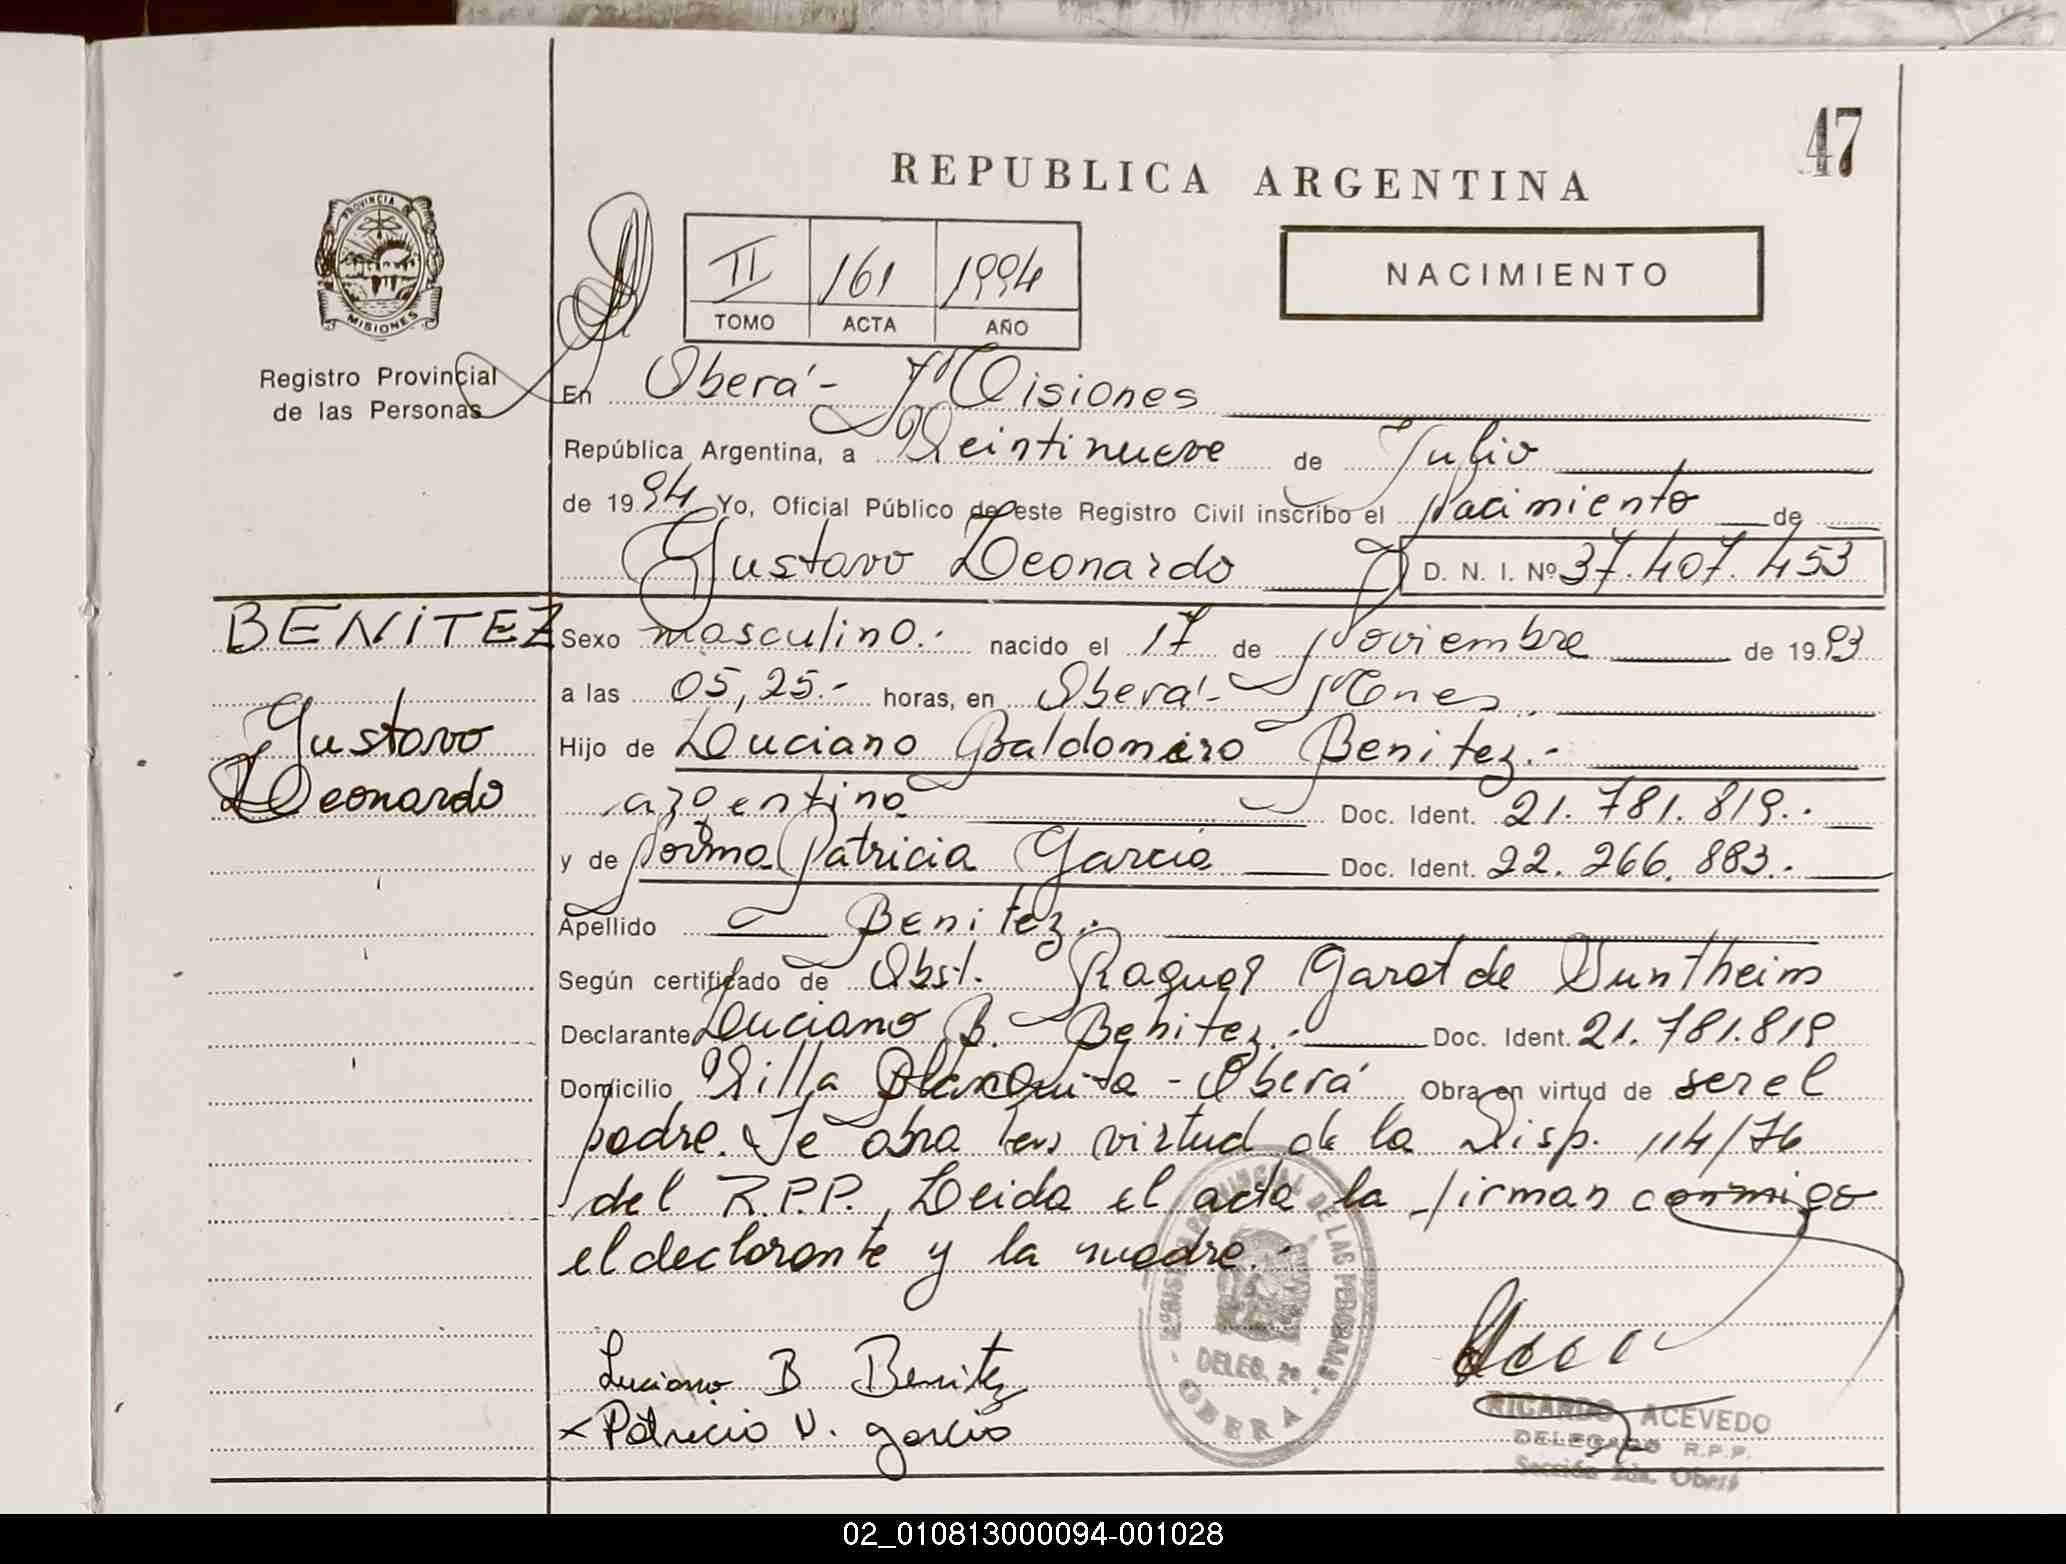 47
REPUBLICA ARGENTINA
PROVINCIA DE
MISIONES
Registro Provincial
de las Personas
II 161 1994
TOMO ACTA AÑO
NACIMIENTO
En Oberá - Misiones
República Argentina, a Veintinueve de Julio
de 1994 Yo, Oficial Público de este Registro Civil inscribo el Nacimiento de
Gustavo Leonardo D. N. I. Nº 37.407.453
BENITEZ
Gustavo
Leonardo
Sexo masculino.- nacido el 17 de Noviembre de 1993
a las 05,25.- horas, en Oberá - Mones
Hijo de Luciano Baldomero Benitez.-
argentino Doc. Ident. 21.781.819.-
y de Norma Patricia Garcia Doc. Ident. 22.266.883.-
Apellido Benitez.-
Según certificado de Obst. Raquel Garat de Suntheim
Declarante Luciano B. Benitez.- Doc. Ident. 21.781.819
Domicilio Villa Blanquita - Oberá Obra en virtud de ser el
padre. Se obra en virtud de la Disp. 114/76
del R.P.P. Leida el acta la firman conmigo
el declarante y la madre.-
Luciano B Benitez
x Patricia N. garcia
REGISTRO PROVINCIAL DE LAS PERSONAS
DELEG. 2ª
- OBERA -
RICARDO ACEVEDO
DELEGADO R.P.P.
Sección 2da. Oberá
02_010813000094-001028